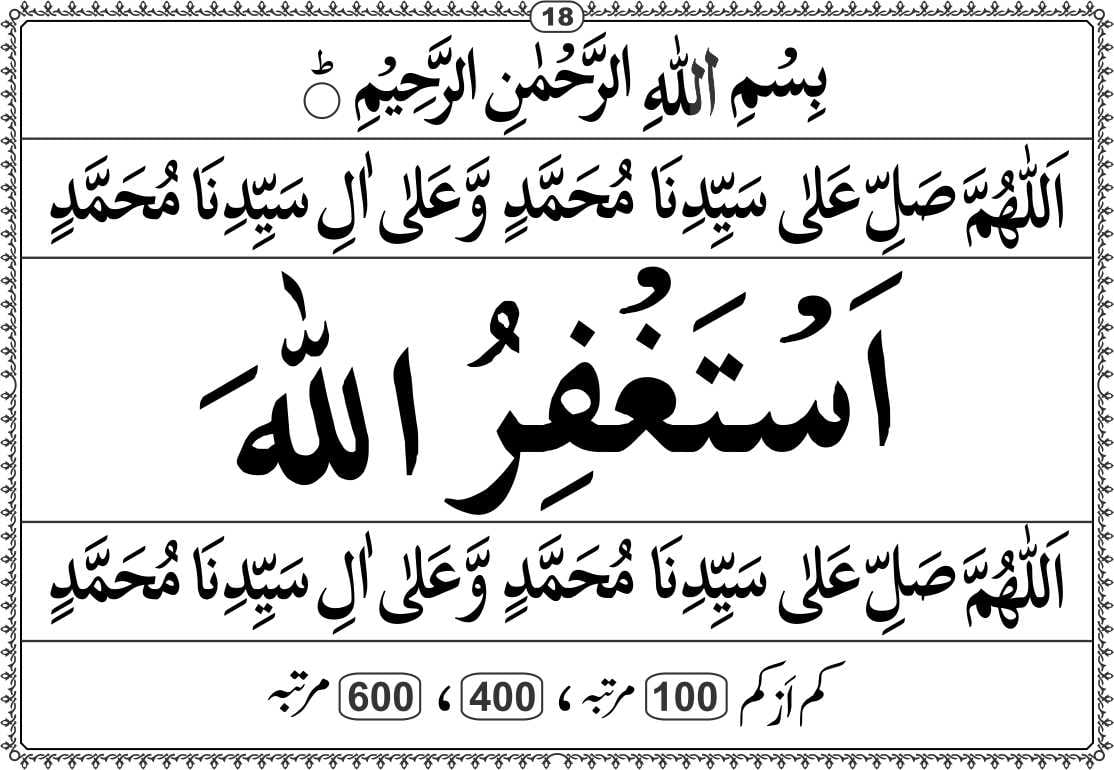 18
بِسْمِ اللّٰهِ الرَّحْمٰنِ الرَّحِيْمِ ؕ○
اَللّٰهُمَّ صَلِّ عَلٰى سَيِّدِنَا مُحَمَّدٍ وَّعَلٰى اٰلِ سَيِّدِنَا مُحَمَّدٍ
اَسْتَغْفِرُ اللّٰهَ
اَللّٰهُمَّ صَلِّ عَلٰى سَيِّدِنَا مُحَمَّدٍ وَّعَلٰى اٰلِ سَيِّدِنَا مُحَمَّدٍ
کم اَز کم 100 مرتبہ ، 400 ، 600 مرتبہ